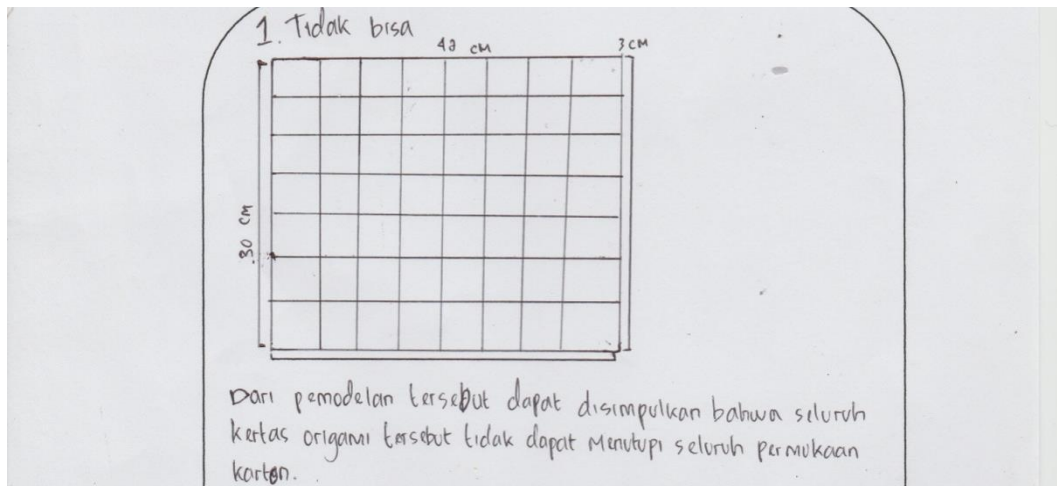 1. Tidak bisa
42 cM
3 cM
30 cM
Dari pemodelan tersebut dapat disimpulkan bahwa seluruh
kertas origami tersebut tidak dapat Menutupi seluruh permukaan
karton.